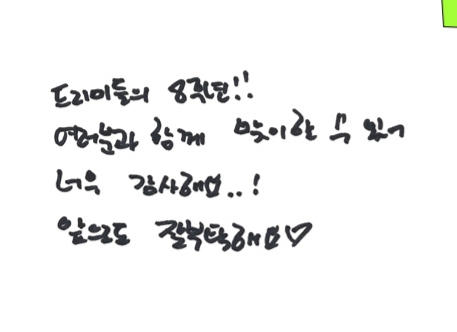 드리미들의 8주년!!
여러분과 함께 맞이할 수 있어
너무 감사해요..!
앞으로도 잘부탁해요♡